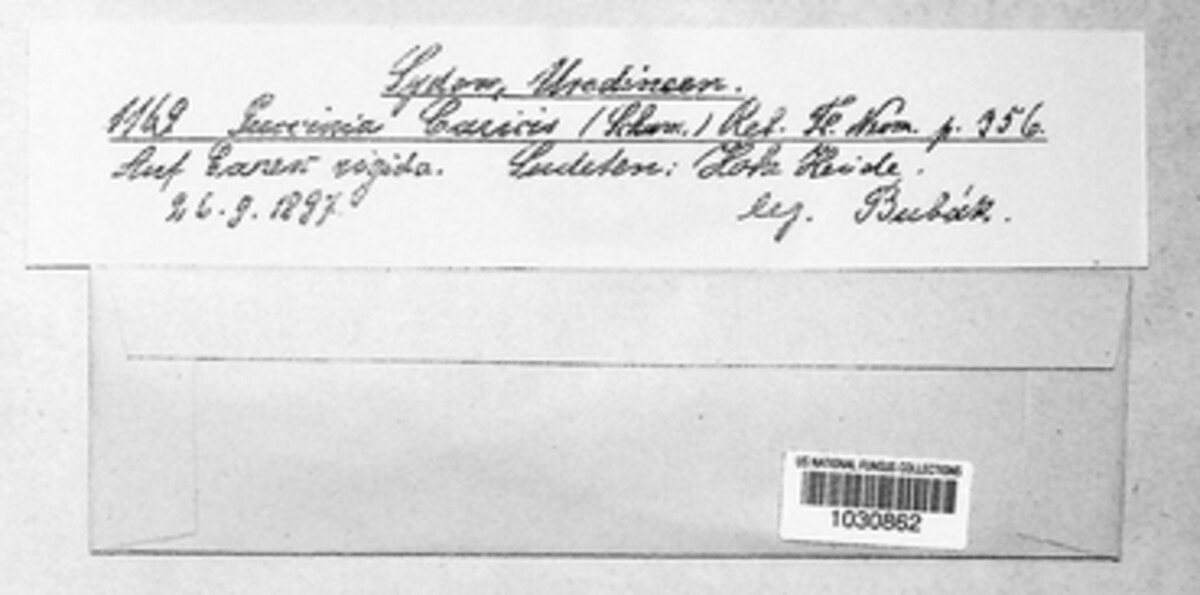 Sydow, Uredineen.
1169 Puccinia Caricis (Schum.) Reb. Fl. Neom. p. 356.
Auf Carex rigida. Sudeten: Hohe Heide.
26.9.1897. leg. Bubák.
US NATIONAL FUNGUS COLLECTIONS
1030862